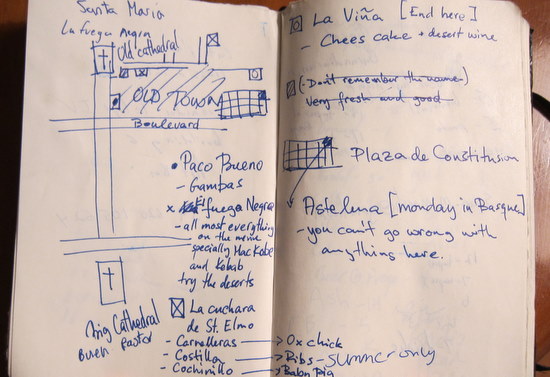 Santa Maria
La fuega Negra
Old cathedral
OLD TOWN
Boulevard
• Paco Bueno
- Gambas
x El fuego Negra
- all most everything
on the menu
specially MacKobe
and Kobab
try the deserts
La cuchara
de St. Elmo
- Carrelleras → Ox chick
- Costilla → Ribs - SUMMER only
- Cochinillo → Baby Pig
Cathedral
Buen Pastor
La Viña [End here]
- Chees cake + desert wine
(- Don't remember the name -)
Very fresh and good
Plaza de Constitusion
Astelena [monday in Basque]
- you can't go wrong with
anything here.